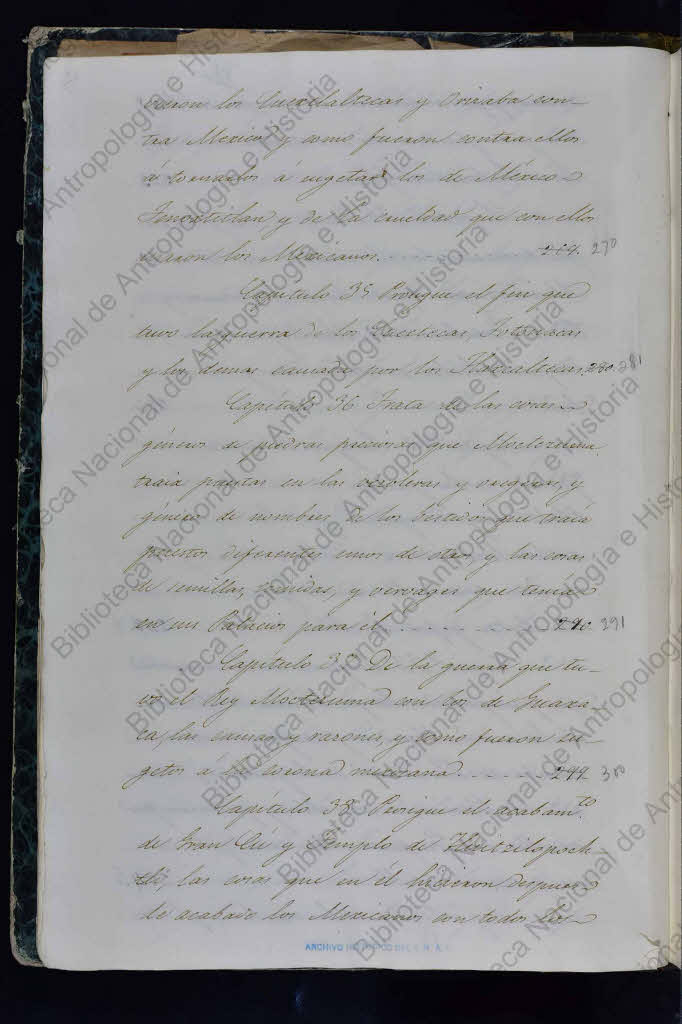 vieron los Cuextlaltecas y Orizaba con-
tra Mexicos y como fueron contra ellos
á tomarlos á sugetar los de México
Tenoxtitlan y de la crueldad que con ellos
usaron los Mexicanos. 269. 270
Capitulo 35 Prosigue el fin que
tuvo la guerra de los Totonacas
y los demas causada por los Tlaxcaltecas. 280. 281
Capitulo 36 Trata de las cosas
géneros de piedras preciosas que Moctezuma
traia puestas en las orejeras, y
género de nombres de los bestidos que traía
puestos diferentes unos de otros, y las cosas
de semillas, comidas, y que tenía
en sus Palacios para él 290 291
Capítulo 37 De la guerra que tu-
vo el Rey Moctezuma con los de Guaxa-
ca, las causas y razones, y como fueron su-
getos á la corona mexicana. 299 300
Capítulo 38 Prosigue el acabam.to
de Gran Cú y Templo de Huitzilopoch-
tli, las cosas que en él hicieron despues
de acabado los Mexicanos con todos los
ARCHIVO HISTORICO DEL I. N. A. H.
Biblioteca Nacional de Antropología e Historia